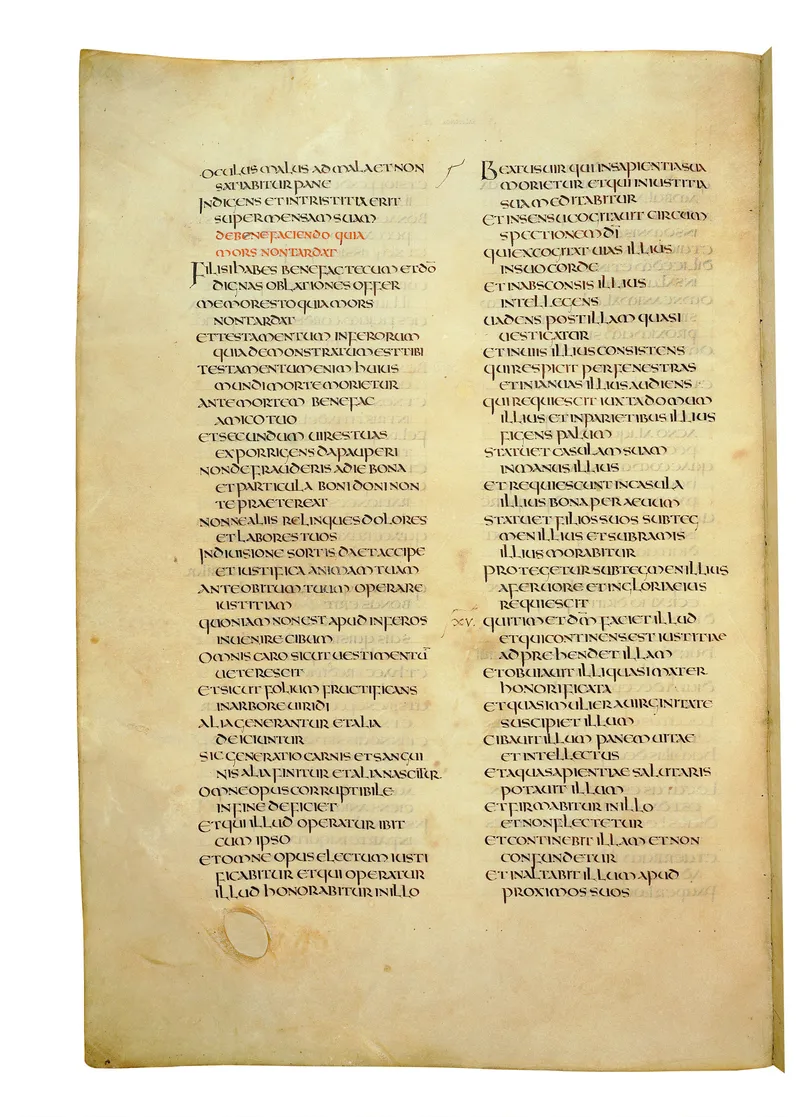 OCULUS MALUS AD MALA ET NON
SATIABITUR PANE
INDIGENS ET IN TRISTITIA ERIT
SUPER MENSAM SUAM
DE BENEFACIENDO QUIA
MORS NON TARDAT
FILI SI HABES BENEFAC TECUM ET DŌ
DIGNAS OBLATIONES OFFER
MEMOR ESTO QUIA MORS
NON TARDAT
ET TESTAMENTUM INFERORUM
QUIA DEMONSTRATUM EST TIBI
TESTAMENTUM ENIM HUIUS
MUNDI MORTE MORIETUR
ANTE MORTEM BENEFAC
AMICO TUO
ET SECUNDUM UIRES TUAS
EXPORRIGENS DA PAUPERI
NON DEFRAUDERIS A DIE BONA
ET PARTICULA BONI DONI NON
TE PRAETEREAT
NONNE ALIIS RELINQUES DOLORES
ET LABORES TUOS
IN DIUISIONE SORTIS DA ET ACCIPE
ET IUSTIFICA ANIMAM TUAM
ANTE OBITUM TUUM OPERARE
IUSTITIAM
QUONIAM NON EST APUD INFEROS
INUENIRE CIBUM
OMNIS CARO SICUT UESTIMENTŪ
UETERESCIT
ET SICUT FOLIUM FRUCTIFICANS
IN ARBORE UIRIDI
ALIA GENERANTUR ET ALIA
DEICIUNTUR
SIC GENERATIO CARNIS ET SANGUI
NIS ALIA FINITUR ET ALIA NASCITUR
OMNE OPUS CORRUPTIBILE
IN FINE DEFICIET
ET QUI ILLUD OPERATUR IBIT
CUM IPSO
ET OMNE OPUS ELECTUM IUSTI
FICABITUR ET QUI OPERATUR
ILLUD HONORABITUR IN ILLO
BEATUS UIR QUI IN SAPIENTIA SUA
MORIETUR ET QUI IN IUSTITIA
SUA MEDITABITUR
ET IN SENSU COGITAUIT CIRCUM
SPECTIONEM DĪ
QUI EXCOGITAT UIAS ILLIUS
IN SUO CORDE
ET IN ABSCONSIS ILLIUS
INTELLEGENS
UADENS POST ILLAM QUASI
UESTIGATUR
ET IN UIIS ILLIUS CONSISTENS
QUI RESPICIT PER FENESTRAS
ET IN IANUAS ILLIUS AUDIENS
QUI REQUIESCIT IUXTA DOMUM
ILLIUS ET IN PARIETIBUS ILLIUS
FIGENS PALUM
STATUET CASULAM SUAM
IN MANUS ILLIUS
ET REQUIESCUNT IN CASULA
ILLIUS BONA PER AEUUM
STATUET FILIOS SUOS SUB TEG
MEN ILLIUS ET SUB RAMIS
ILLIUS MORABITUR
PROTEGETUR SUB TEGMEN ILLIUS
A FERUORE ET IN GLORIA EIUS
REQUIESCIT
XV. QUI TIMET DM̄ FACIET ILLUD
ET QUI CONTINENS EST IUSTITIAE
ADPREHENDET ILLAM
ET OBUIAUIT ILLI QUASI MATER
HONORIFICATA
ET QUASI MULIER A UIRGINITATE
SUSCIPIET ILLUM
CIBAUIT ILLUM PANEM UITAE
ET INTELLECTUS
ET AQUA SAPIENTIAE SALUTARIS
POTAUIT ILLUM
ET FIRMABITUR IN ILLO
ET NON FLECTETUR
ET CONTINEBIT ILLAM ET NON
CONFUNDETUR
ET INALTABIT ILLUM APUD
PROXIMOS SUOS